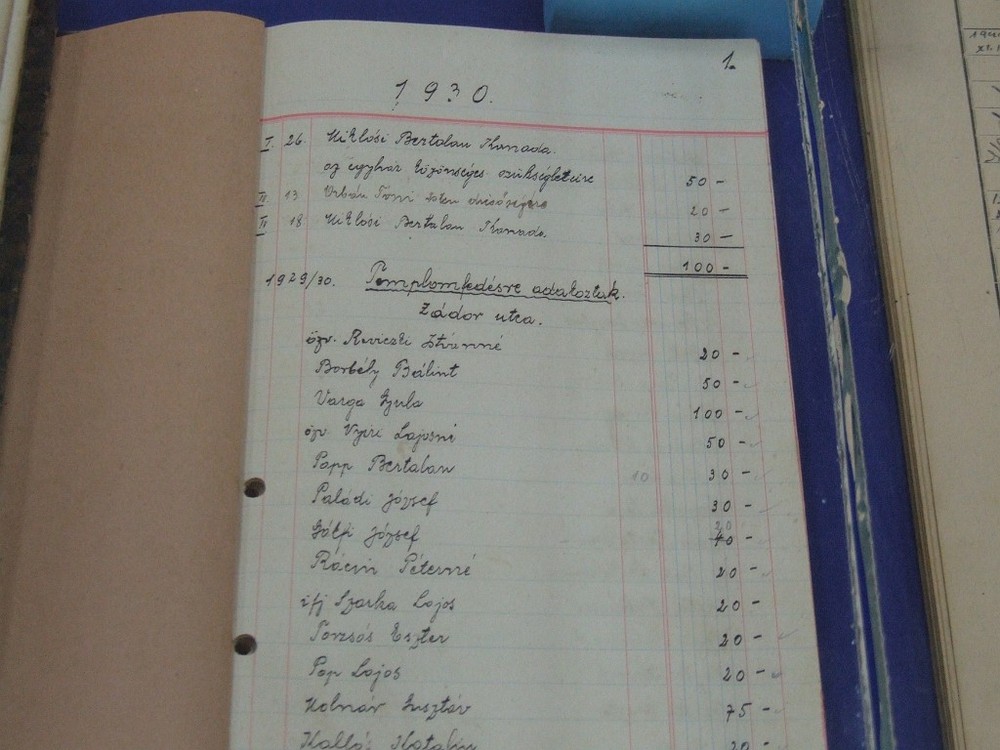 1.
1930.
I. 26. Miklósi Bertalan Kanada.
az egyház közönséges szükségleteire 50 –
II. 13 Urbán Toni Isten dicsőségére 20 –
II. 18 Miklósi Bertalan Kanada. 30 –
100 –
1929/30. Templomfedésre adakoztak.
Zádor utca.
özv. Reviczki Istvánné 20 –
Borbély Bálint 50 –
Varga Gyula 100 –
özv. Lajosné 50 –
Papp Bertalan 10 30 –
Paládi József 30 –
József 20 –
Péterné 20 –
ifj Szarka Lajos 20 –
Eszter 20 –
Pap Lajos 20 –
Molnár Gusztáv 75 –
Katalin 20 –